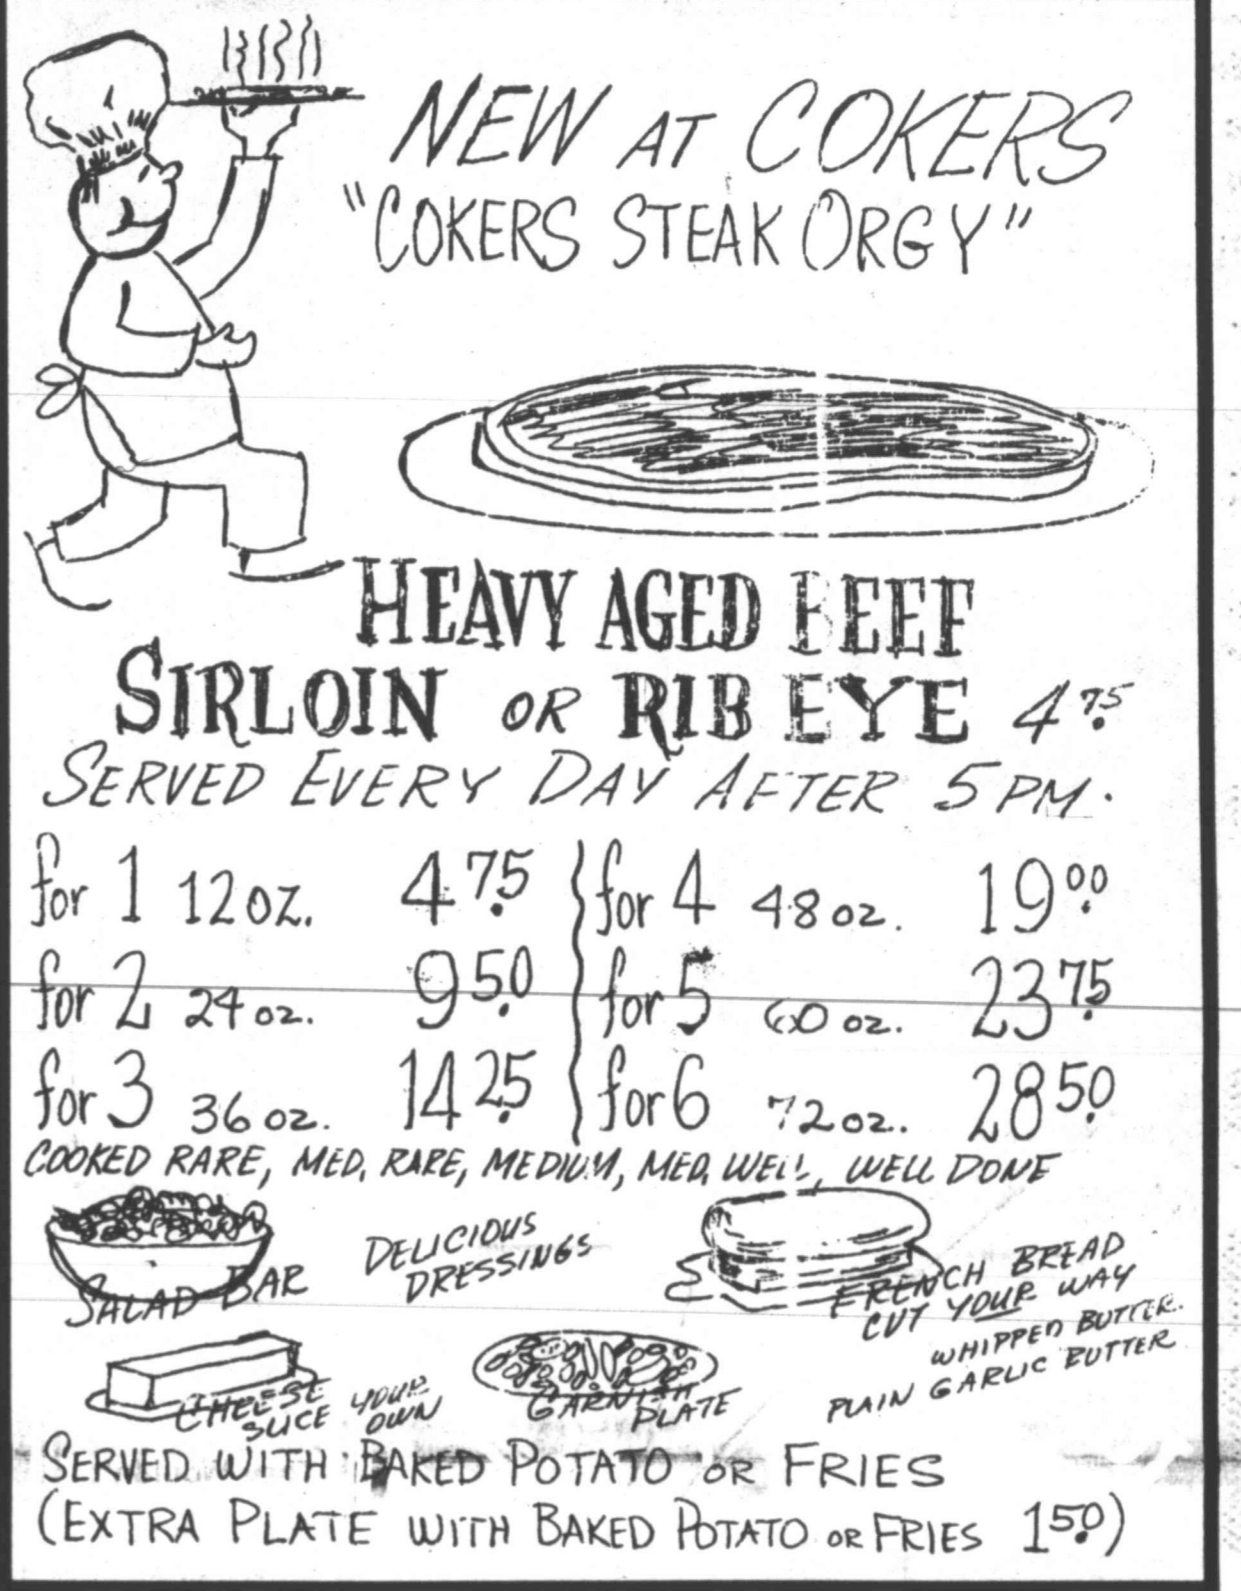 NEW AT COKERS
"COKERS STEAK ORGY"
HEAVY AGED BEEF
SIRLOIN OR RIB EYE 4.75
SERVED EVERY DAY AFTER 5 PM.
for 1 12 oz. 4.75
for 2 24 oz. 9.50
for 3 36 oz. 14.25
for 4 48 oz. 19.00
for 5 60 oz. 23.75
for 6 72 oz. 28.50
COOKED RARE, MED. RARE, MEDIUM, MED. WELL, WELL DONE
SALAD BAR
DELICIOUS
DRESSINGS
FRENCH BREAD
CUT YOUR WAY
WHIPPED BUTTER.
PLAIN GARLIC BUTTER
CHEESE
SLICE YOUR
OWN
GARNISH
PLATE
SERVED WITH BAKED POTATO OR FRIES
(EXTRA PLATE WITH BAKED POTATO OR FRIES 1.50)